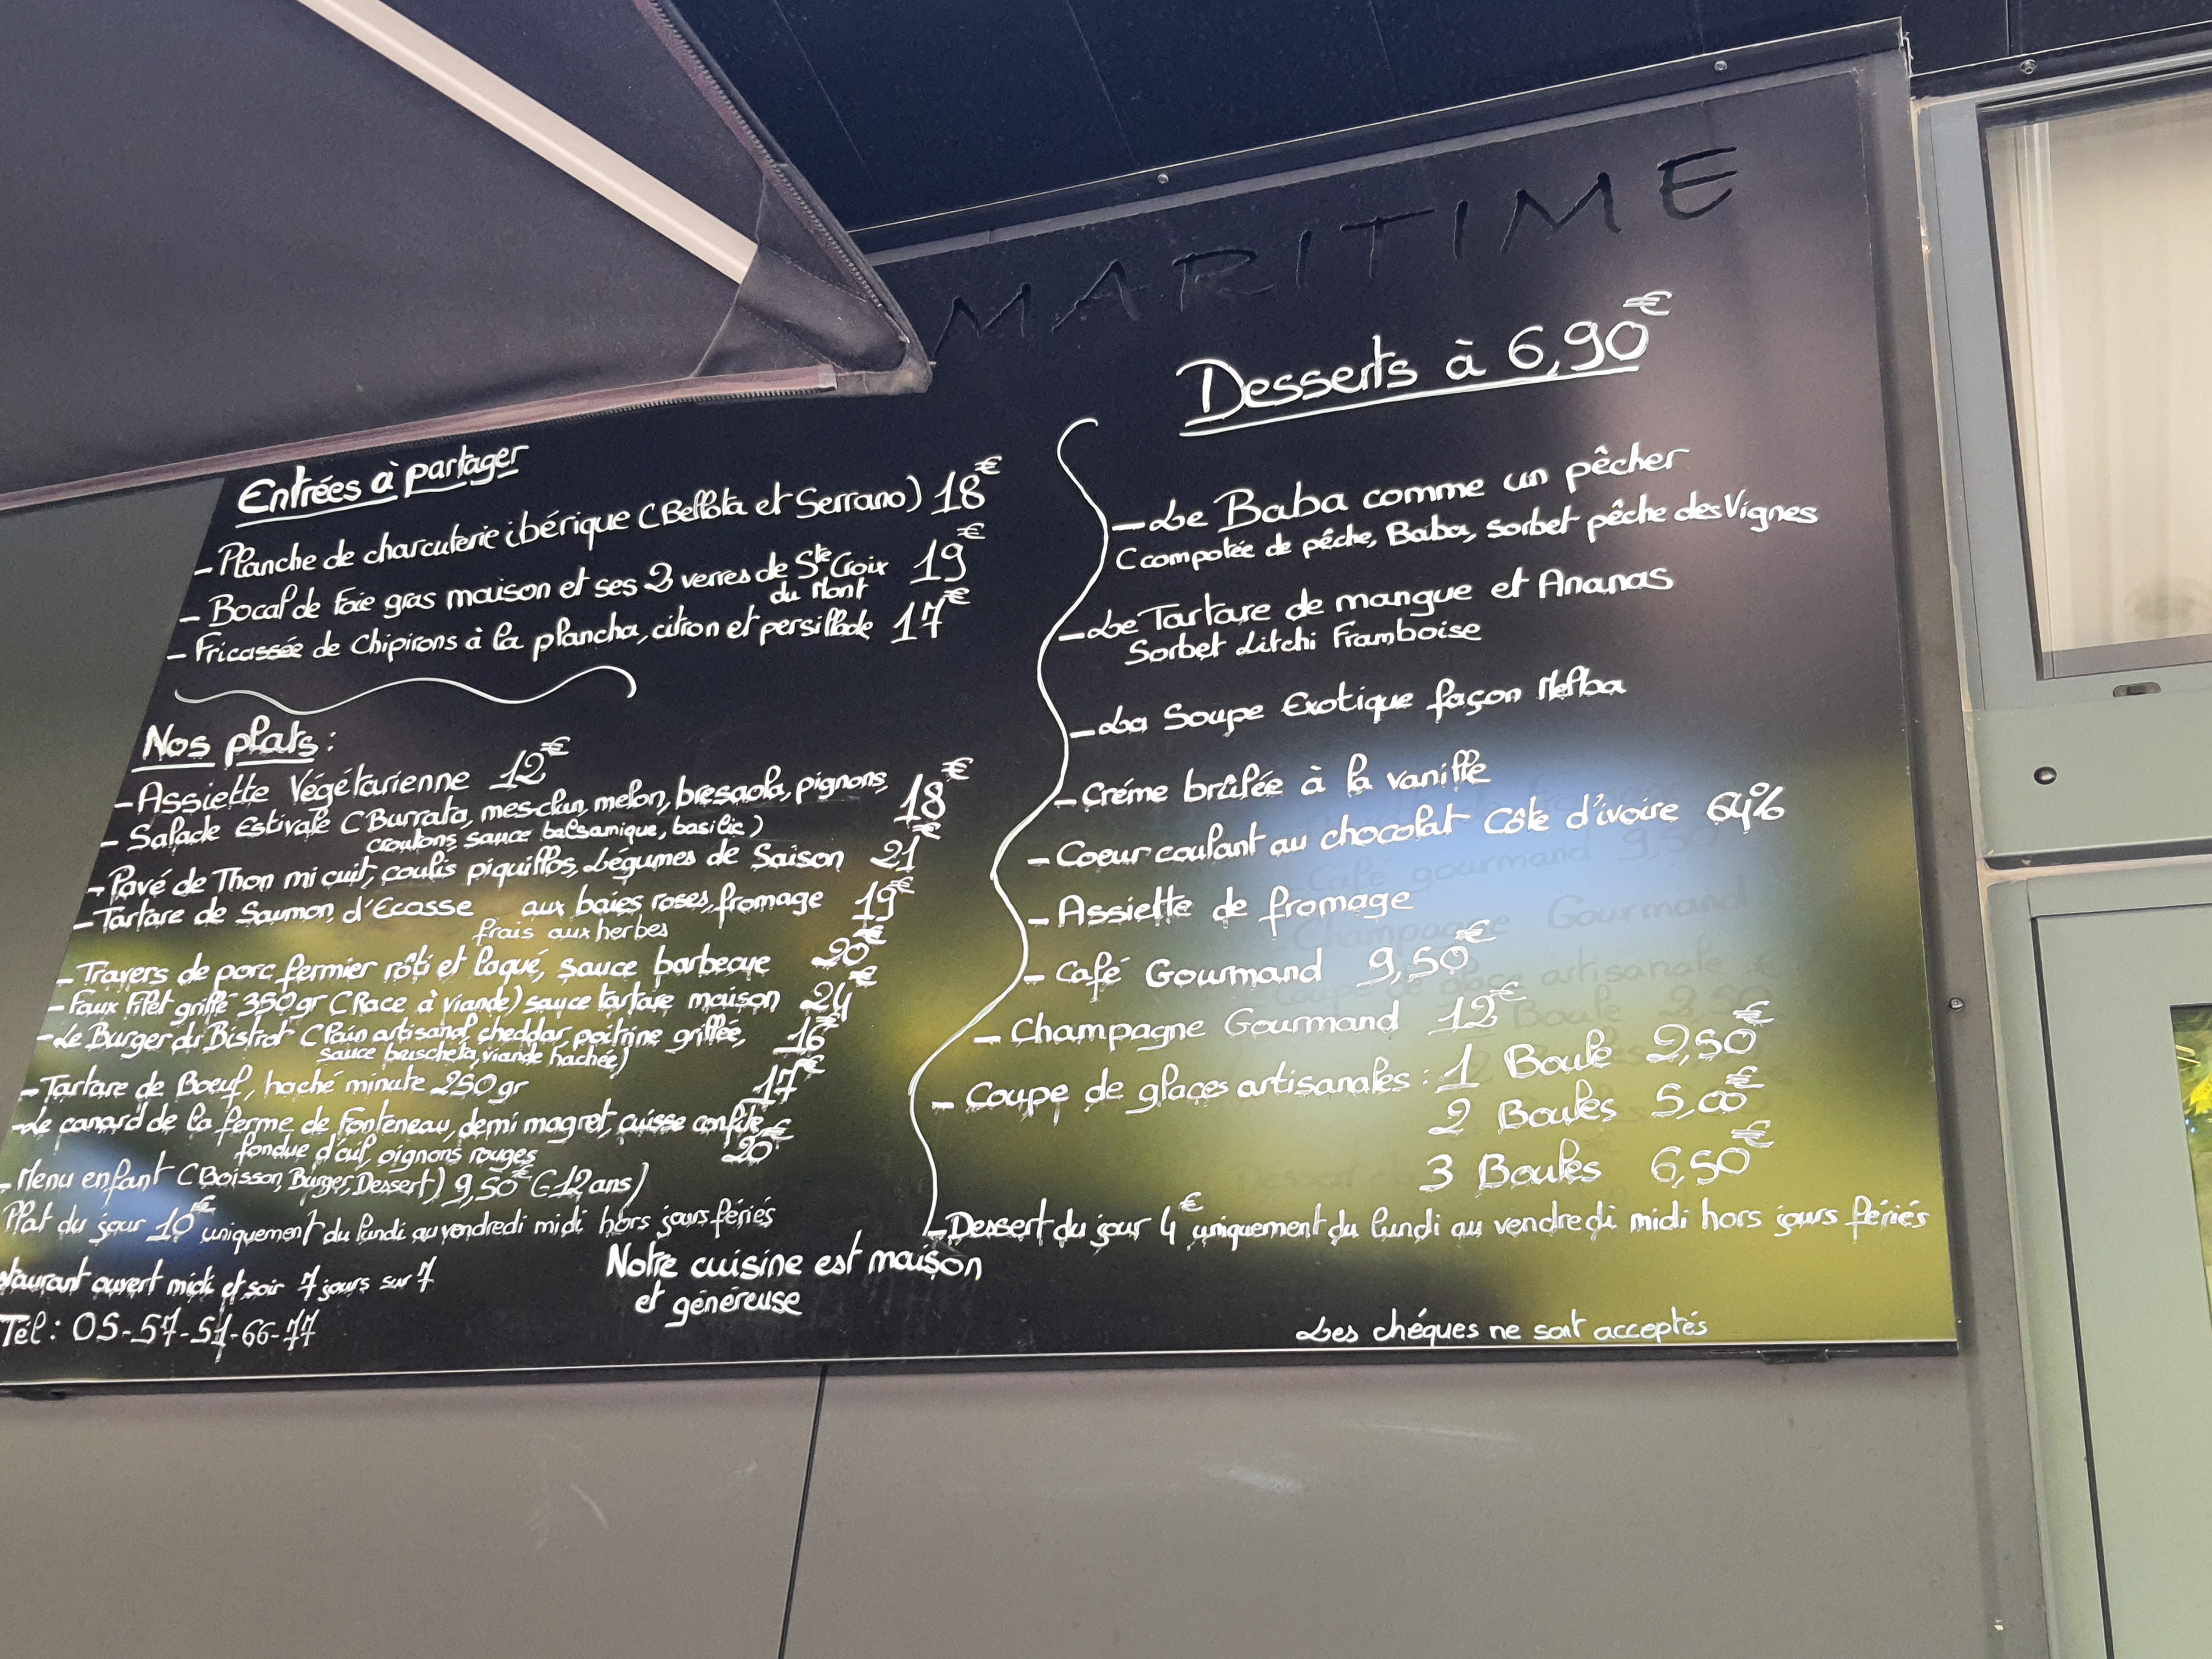 MARITIME
Entrées à partager
- Planche de charcuterie ibérique (Bellota et Serrano) 18€
- Bocal de Foie gras maison et ses 2 verres de Ste Croix 19€
du Mont
- Fricassée de Chipirons à la plancha, citron et persillade 17€
Nos plats :
- Assiette Végétarienne 12€
- Salade Estivale (Burrata, mesclun, melon, bresaola, pignons, 18€
croutons, sauce balsamique, basilic)
- Pavé de Thon mi cuit, coulis piquillos, Légumes de Saison 21€
- Tartare de Saumon d'Ecosse aux baies roses, fromage 19€
frais aux herbes
- Travers de porc fermier rôti et laqué, sauce barbecue 20€
- Faux Filet grillé 350gr (Race à viande) sauce tartare maison 24€
- Le Burger du Bistrot (Pain artisanal, cheddar, poitrine grillée, 16€
sauce bruscheta, viande hachée)
- Tartare de Boeuf, haché minute 250gr 17€
- Le canard de la ferme de Fonteneau, demi magret, cuisse confite,
fondue d'ail, oignons rouges 20€
- Menu enfant (Boisson, Burger, Dessert) 9,50€ (-12ans)
Plat du jour 10€ uniquement du lundi au vendredi midi hors jours fériés
taurant ouvert midi et soir 7 jours sur 7
Tél : 05-57-51-66-77
Notre cuisine est maison
et généreuse
Desserts à 6,90€
- Le Baba comme un pêcher
(compotée de pêche, Baba, sorbet pêche des Vignes
- Le Tartare de mangue et Ananas
Sorbet Litchi Framboise
- La Soupe Exotique façon Melba
- Créme brûlée à la vanille
- Coeur coulant au chocolat Côte d'ivoire 64%
- Assiette de fromage
- Café Gourmand 9,50€
- Champagne Gourmand 12€
- Coupe de glaces artisanales : 1 Boule 2,50€
2 Boules 5,00€
3 Boules 6,50€
- Dessert du jour 4€ uniquement du lundi au vendredi midi hors jours fériés
Les chéques ne sont acceptés